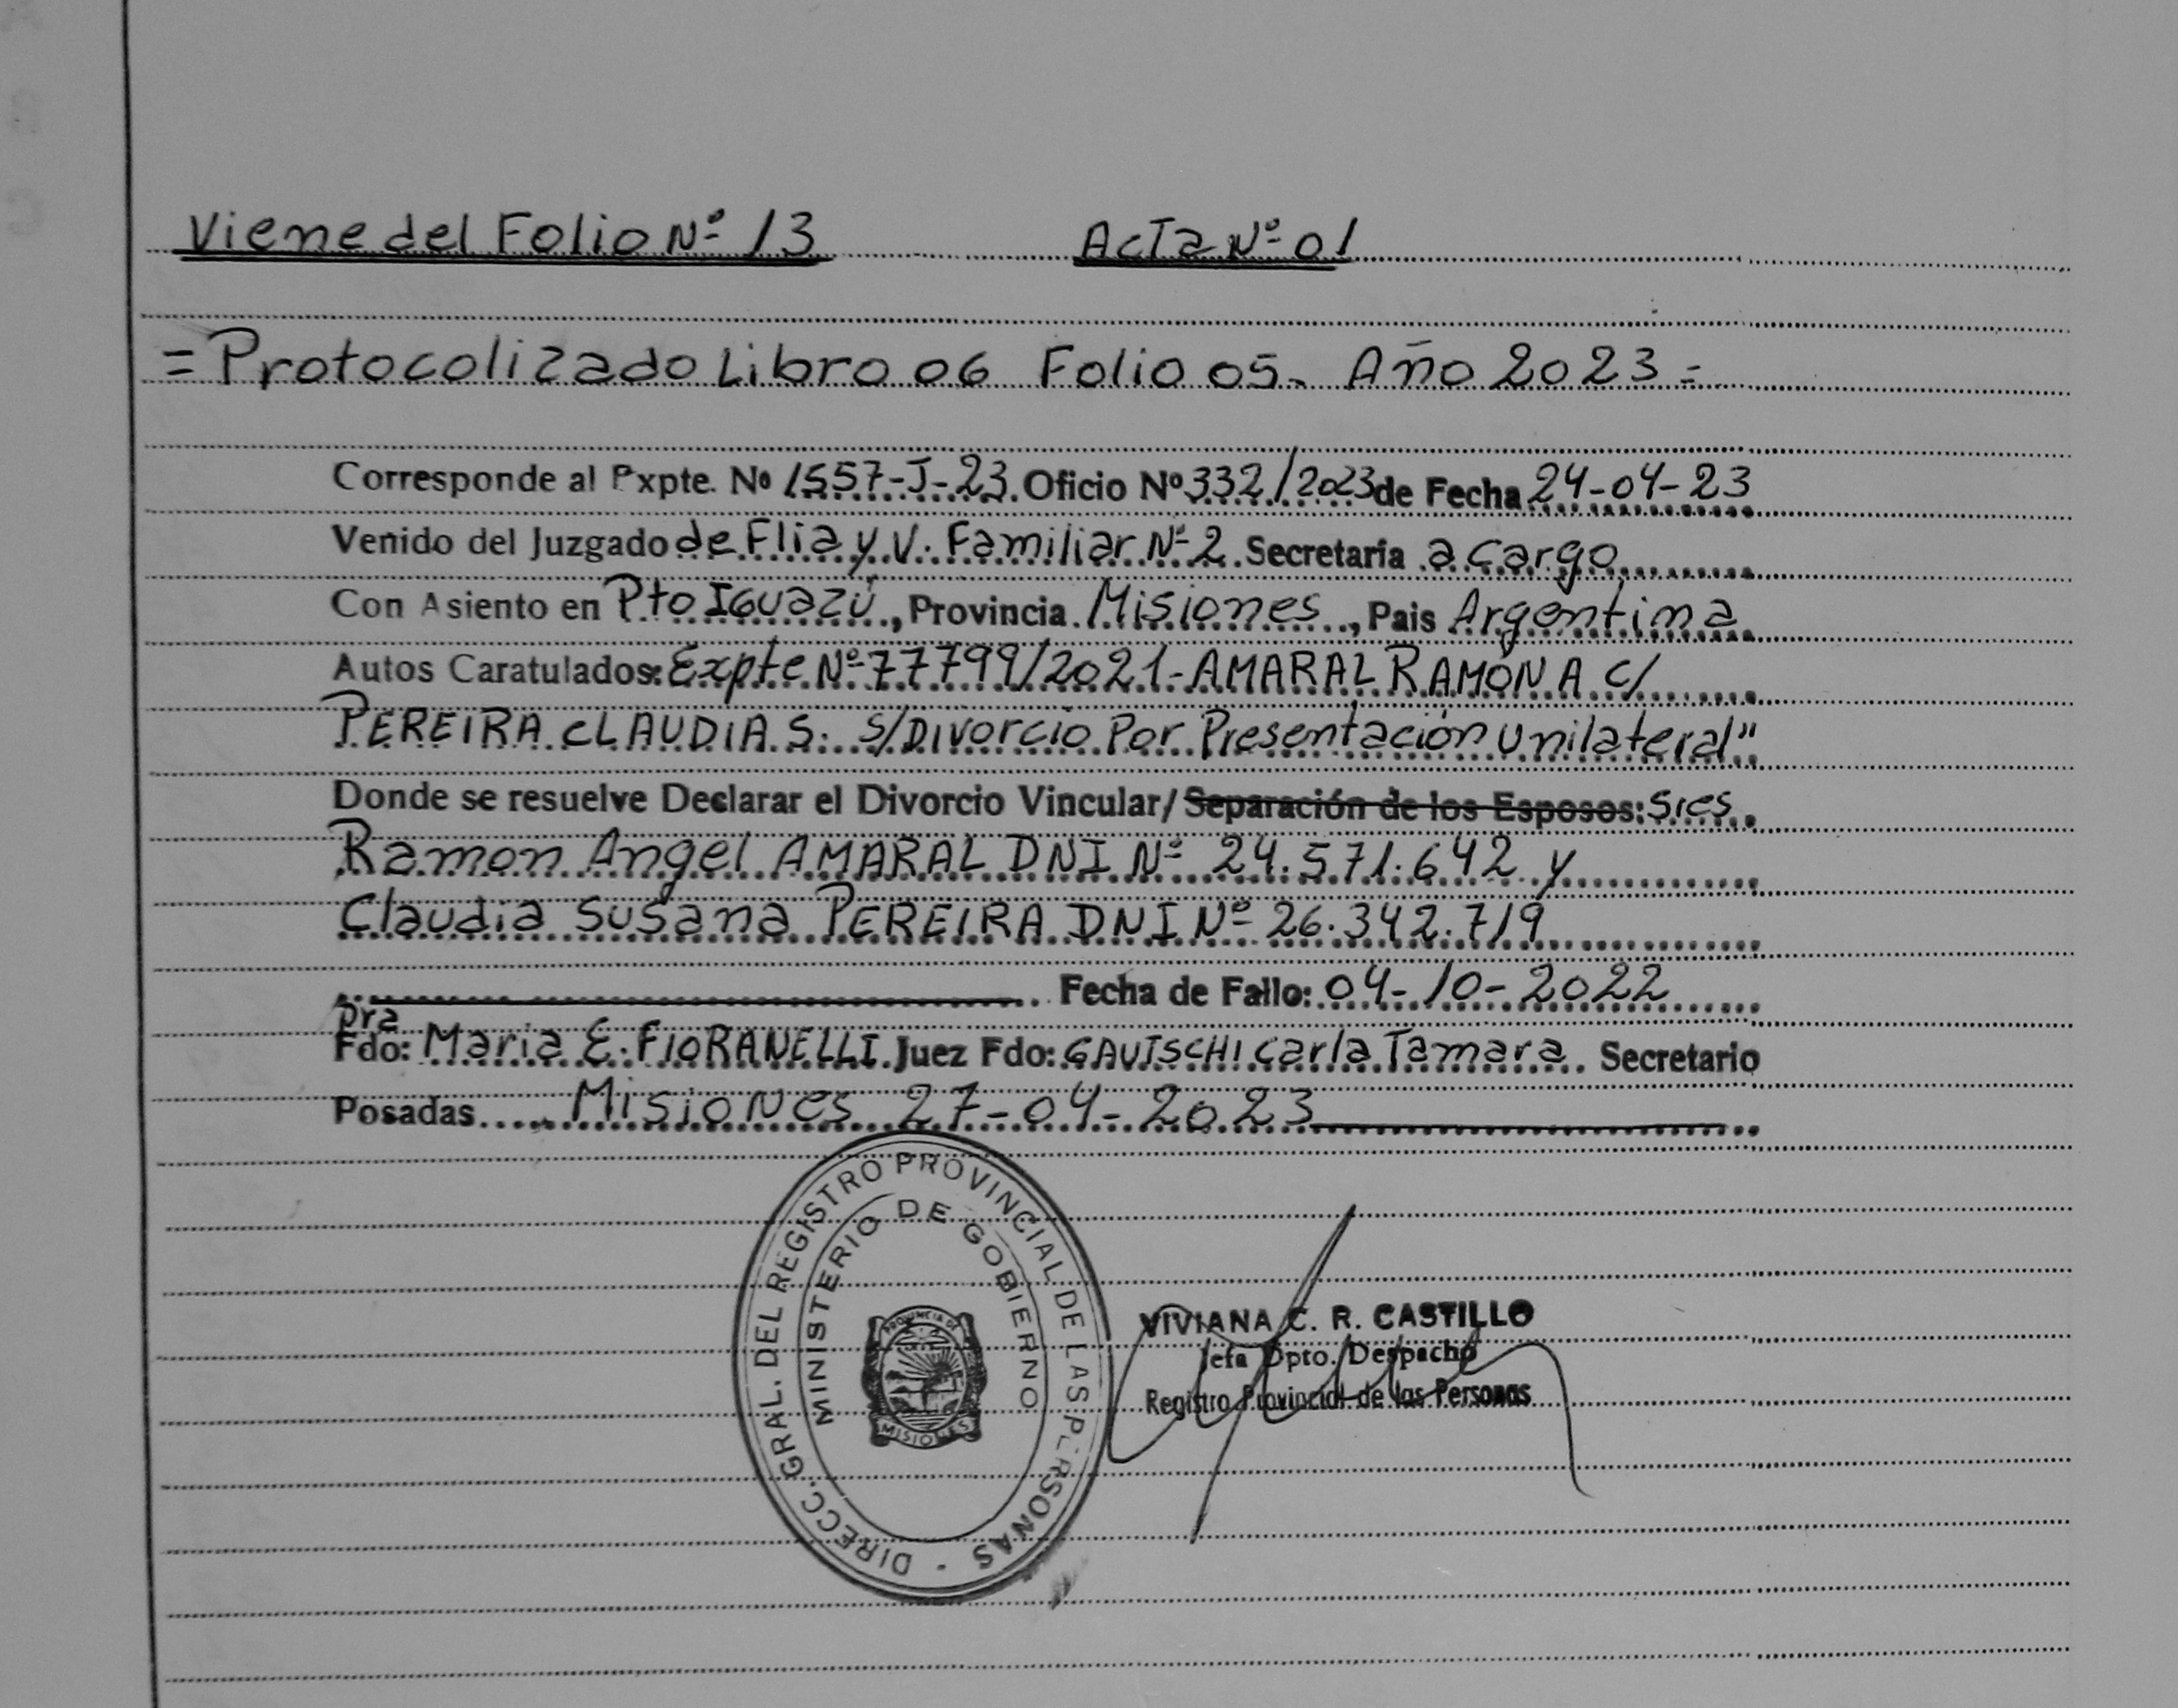 Viene del Folio Nº 13 Acta Nº 01
= Protocolizado Libro 06 Folio 05. Año 2023 =
Corresponde al Expte. Nº 1557-J-23. Oficio Nº 332/2023 de Fecha 24-04-23
Venido del Juzgado de Flia y V. Familiar Nº 2 Secretaría a cargo
Con Asiento en Pto Iguazú, Provincia Misiones, Pais Argentina
Autos Caratulados: Expte Nº 77799/2021-AMARAL RAMÓN A c/
PEREIRA CLAUDIA S. s/Divorcio Por Presentación Unilateral"
Donde se resuelve Declarar el Divorcio Vincular/ Separación de los Esposos: Sres
Ramon Angel AMARAL DNI Nº 24.571.642 y
Claudia Susana PEREIRA DNI Nº 26.342.719
Fecha de Fallo: 04-10-2022
Dra
Fdo: Maria E. FIORANELLI Juez Fdo: GAUTSCHI Carla Tamara Secretario
Posadas Misiones 27-04-2023
DIRECC. GRAL. DEL REGISTRO PROVINCIAL DE LAS PERSONAS -
MINISTERIO DE GOBIERNO
PROVINCIA DE
MISIONES
VIVIANA C. R. CASTILLO
Jefa Dpto. Despacho
Registro Provincial de las Personas